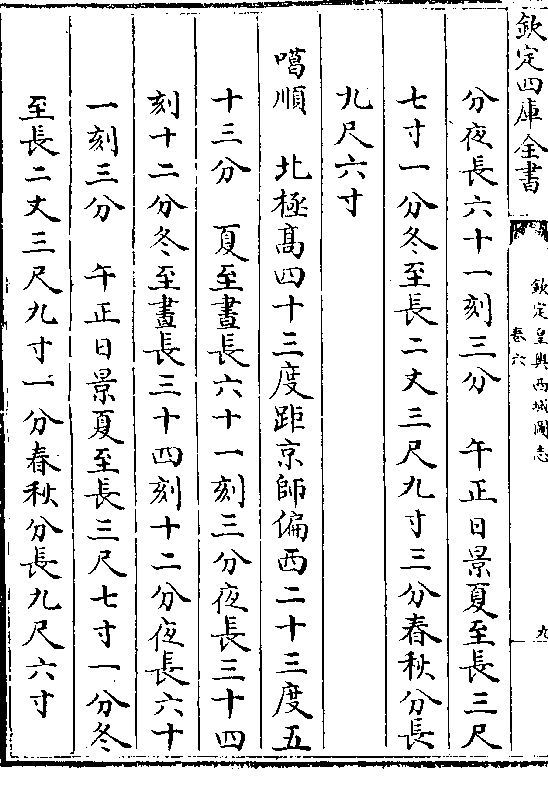 欽定四庫全書
欽定皇輿西域圖志
卷六
九
分夜長六十一刻三分　午正日景夏至長三尺
七寸一分冬至長二丈三尺九寸三分春秋分長
九尺六寸
噶順　北極高四十三度距京師偏西二十三度五
十三分　夏至晝長六十一刻三分夜長三十四
刻十二分冬至晝長三十四刻十二分夜長六十
一刻三分　午正日景夏至長三尺七寸一分冬
至長二丈三尺九寸一分春秋分長九尺六寸